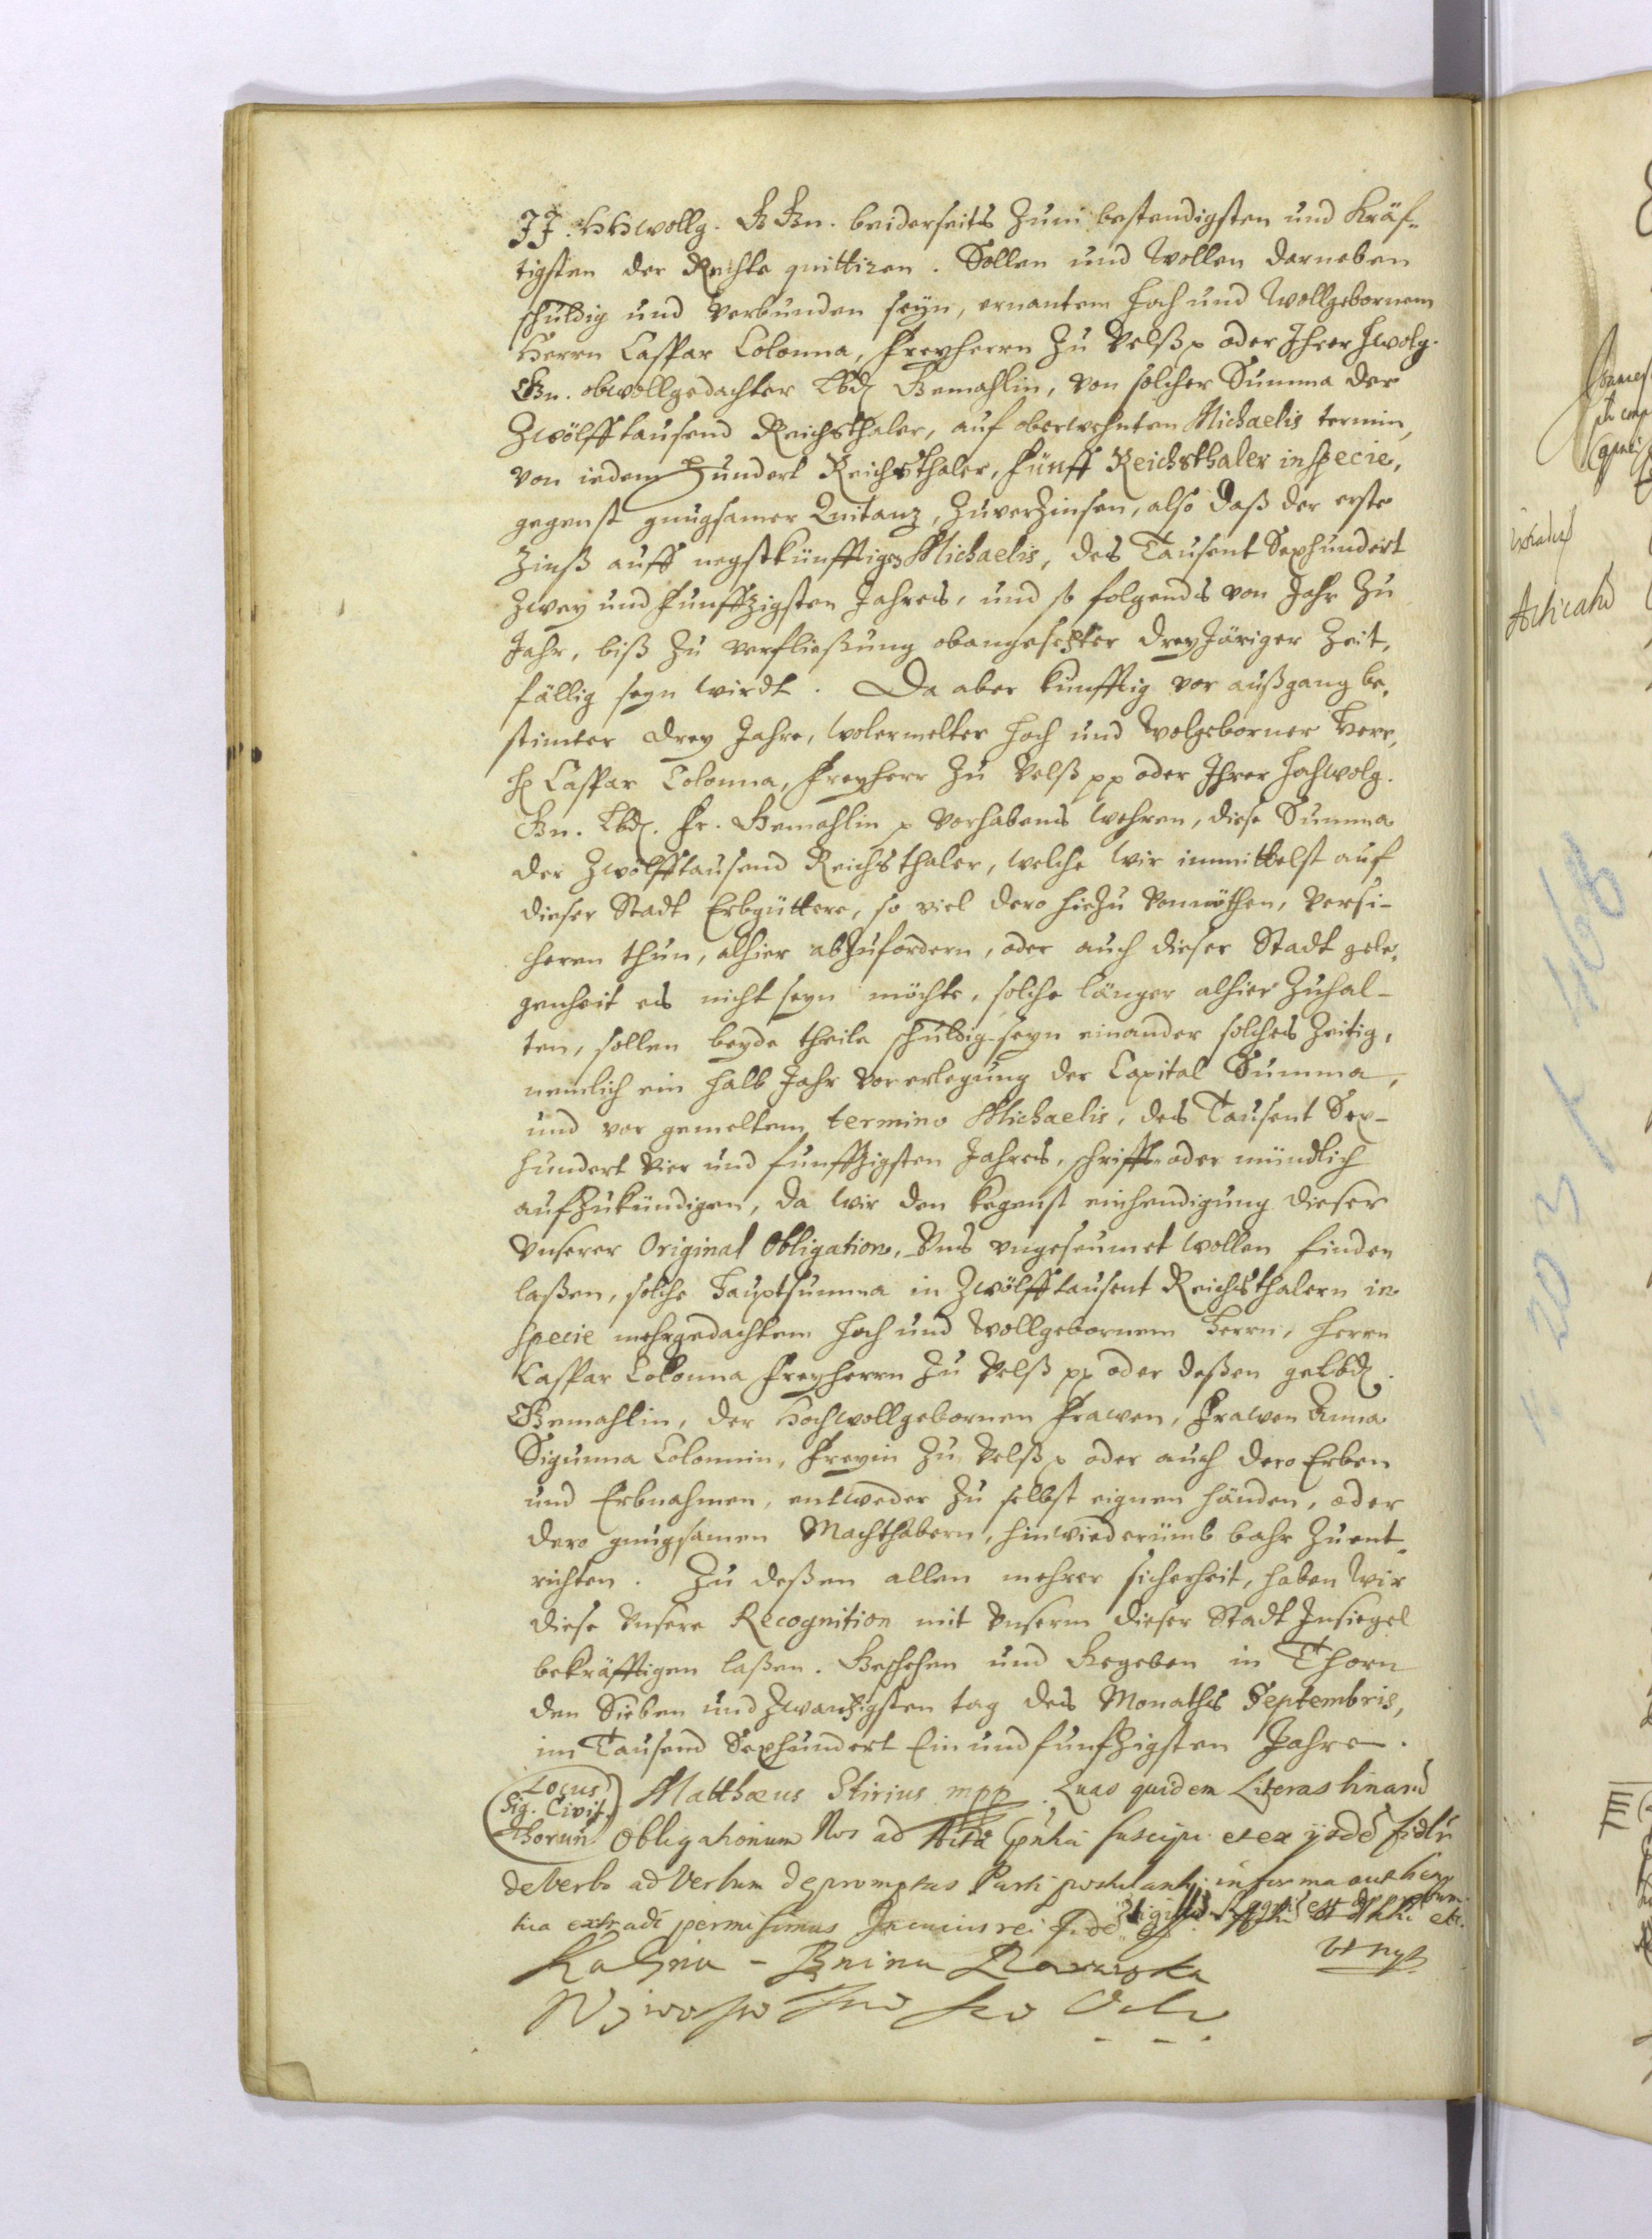 JJ. HHwollg. G Gn. beiderseits Zum bestendigsten und Kräf-
tigsten der Rechte quittiren. Sollen und Wollen darneben
schuldig und verbunden seyn, ernantem Hoch und Wollgebornem
Herrn Caspar Colonna, Freyherrn Zu Velß p oder Ihrer Hwolg.
Gn. obwollgedachter Lbd. Gemahlin, von solcher Summa der
Zwölfftausend Reichsthaler, auf oberwehnten Michaelis termin,
von iedem Hundert Reichsthaler, fünff Reichsthaler in specie,
gegenst gnugsamer Quitanz, Zuverzinsen, also daß der erste
Zinß auff negstkünfftiges Michaelis, des Tausent Sexhundert
Zwey und funffzigsten Jahres, und so folgends von Jahr Zu
Jahr, biß Zu verfließung obangesetzter dreyJäriger Zeit,
fällig seyn wirdt. Da aber künfftig vor außgang be-
stimter drey Jahre, wolermelter Hoch und Wolgeborner Herr,
H. Caspar Colonna, Freyherr Zu Velß pp oder Ihrer Hochwolg.
Gn. Lbd. Fr. Gemahlin p vorhabens wehren, diese Summa
der Zwölfftausend Reichsthaler, welche wir inmittelst auf
dieser Stadt Erbgüttere, so viel dero hiezu vonnöthen, versi-
chern thun, alhier abzufordern, oder auch dieser Stadt gele-
genheit es nicht seyn möchte, solche länger alhier Zuhal-
ten, sollen beyde theile schuldig seyn einander solches Zeitig,
nemlich ein halb Jahr vor erlegung der Capital Summa,
und vor gemeltem termino Michaelis, des Tausent Sex-
hundert Vier und funffzigsten Jahres, schrifft oder mündlich
aufzukündigen, da wir den kegenst einhendigung dieser
Unserer Original Obligation, Uns ungeseumet wollen finden
laßen, solche Hauptsumma in Zwölfftausent Reichsthalern in
specie mehrgedachtem Hoch und Wollgebornem Herrn, Herrn
Caspar Colonna Freyherrn Zu Velß pp oder deßen gel. Lbd.
Gemahlin, der Hochwollgebornen Frawen, Frawen Anna
Sigunna Colonnin, Freyin Zu Velß p oder auch dero Erben
und Erbnahmen, entweder Zu selbst eignen händen, oder
dero gnugsamen Machthabern, hinwiederümb bahr Zuent-
richten. Zu deßen allen mehrer sicherheit, haben Wir
diese Unsere Recognition mit Unserm dieser Stadt Insiegel
bekräfftigen laßen. Geschehen und Gegeben in Thorn
den Sieben und Zwantzigsten tag des Monaths Septembris,
im Tausend Sexhundert Ein und funfzigsten Jahre.
Locus
Sig. Civit.
Thorun
Matthæus Stirius mpp. Quas quidem Literas
Obligationum Nos ad Acta suscipi et ex
de Verbo ad Verbum depromptas Parti postulanti in forma authen
tica extradi permisimus In cuius rei fidem